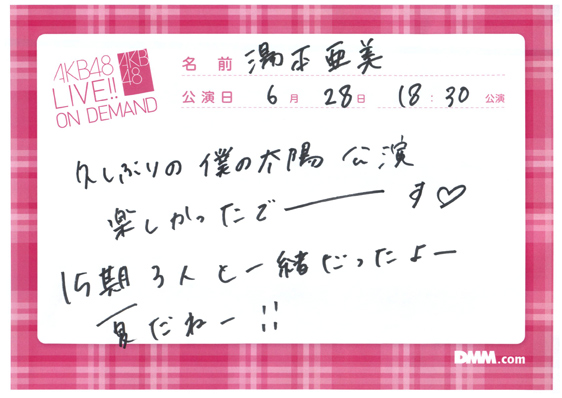 AKB48
LIVE!!
ON DEMAND
AKB
48
名前 湯本亜美
公演日 6月 28日 18:30 公演
久しぶりの 僕の太陽 公演
楽しかったで――す♡
15期3人と一緒だったよー
夏だねー!!
DMM.com